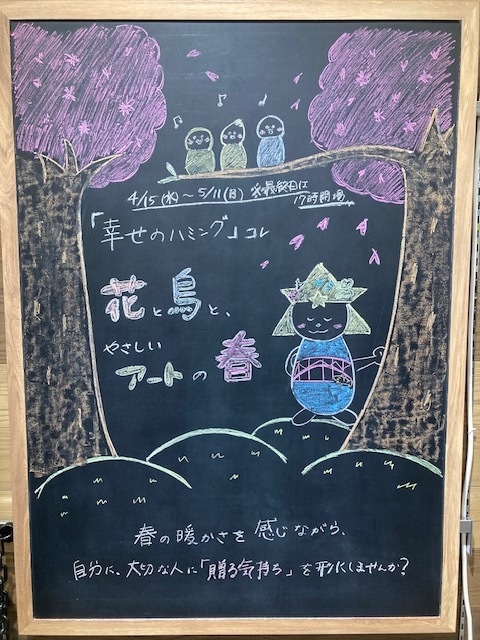 4/15(水)~5/11(日) ※最終日は
17時閉場
「幸せのハミング」コレ
花と鳥と、
やさしい
アートの春
春の暖かさを感じながら、
自分に、大切な人に「贈る気持ち」を形にしませんか?